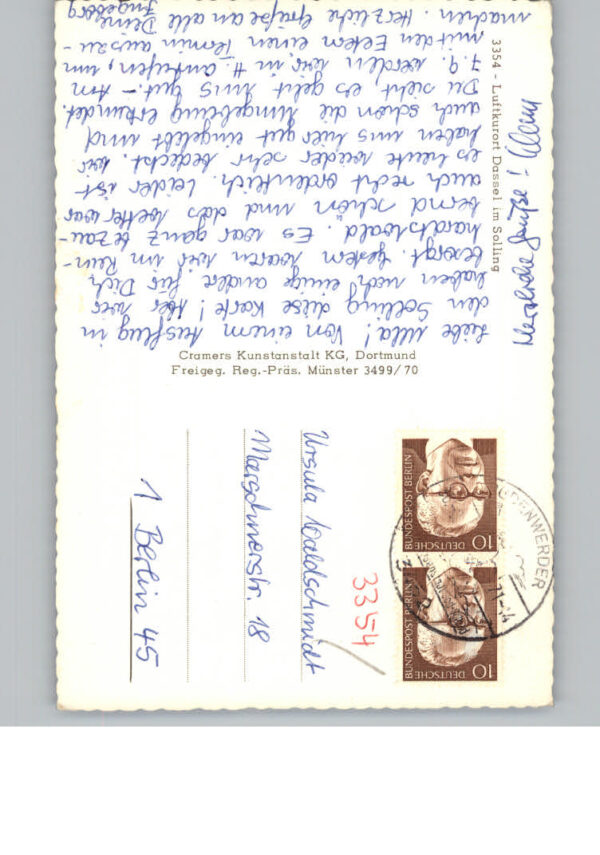 Liebe Ulla! Von einem Ausflug in
den Solling diese Karte! Aber wir
haben noch einige andere für Dich
besorgt. Gestern waren wir im Rein-
hardtswald. Es war ganz bezau-
bernd schön und das Wetter war
auch recht ordentlich. Leider ist
es heute wieder sehr bedeckt. Wir
haben uns hier gut eingelebt und
auch schon die Umgebung erkundet.
Du siehst, es geht uns gut. - Am
7.9. werden wir in H. anrufen, um
mit den Eltern einen Termin auszu-
machen. Herzliche Grüße an alle Deine
Ingeborg
Herzliche Grüße!
3354 - Luftkurort Dassel im Solling
Cramers Kunstanstalt KG, Dortmund
Freigeg. Reg.-Präs. Münster 3499/70
DEUTSCHE
BUNDESPOST BERLIN
10
DEUTSCHE
BUNDESPOST BERLIN
10
3354
Ursula Waldschmidt
Marschnerstr. 18
1 Berlin 45